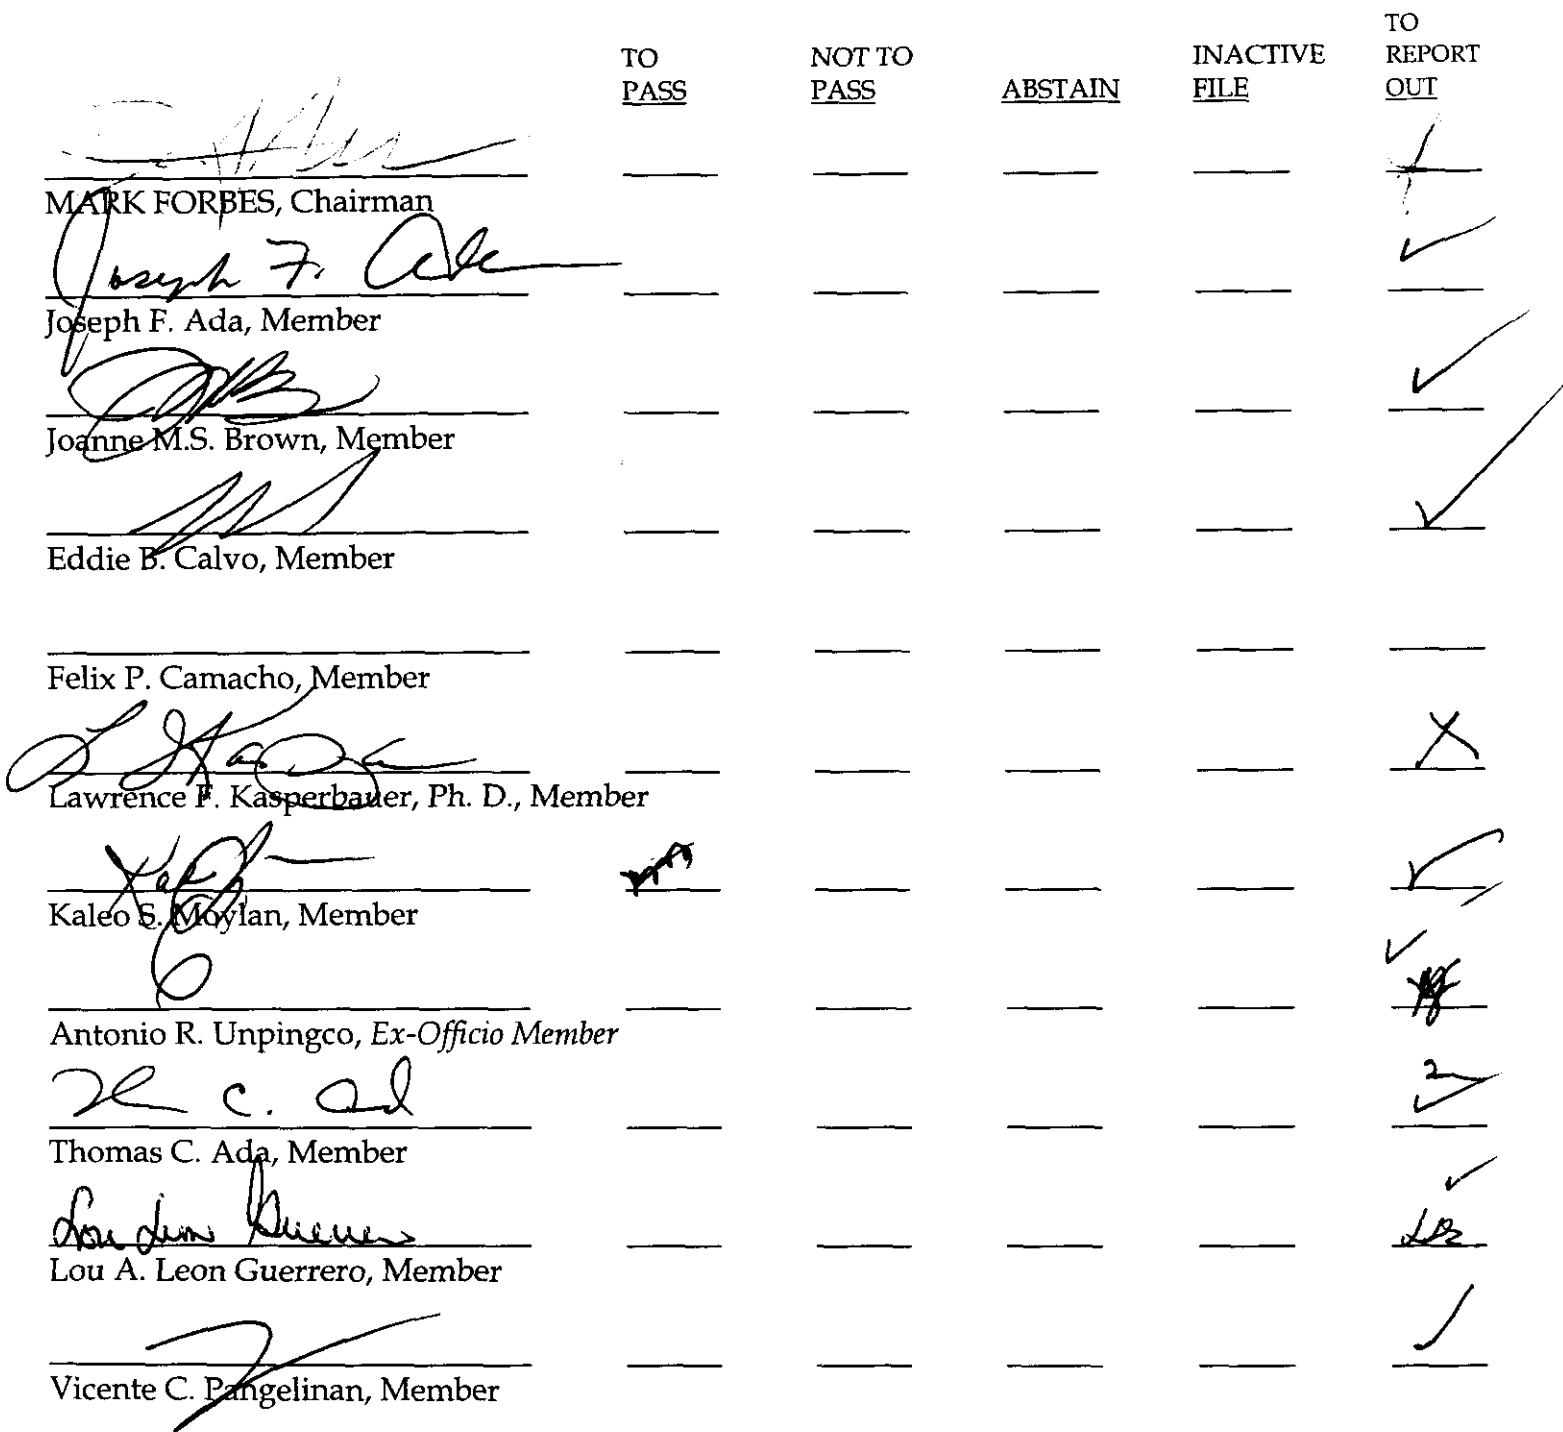 TO
PASS
NOT TO
PASS
ABSTAIN
INACTIVE
FILE
TO
REPORT
OUT
MARK FORBES, Chairman
Joseph F. Ada
Joseph F. Ada, Member
Joanne M.S. Brown, Member
Eddie B. Calvo, Member
Felix P. Camacho, Member
Lawrence F. Kasperbauer, Ph. D., Member
Kaleo S. Moylan, Member
Antonio R. Unpingco, Ex-Officio Member
Thomas C. Ada, Member
Lou Leon Guerrero
Lou A. Leon Guerrero, Member
Vicente C. Pangelinan, Member